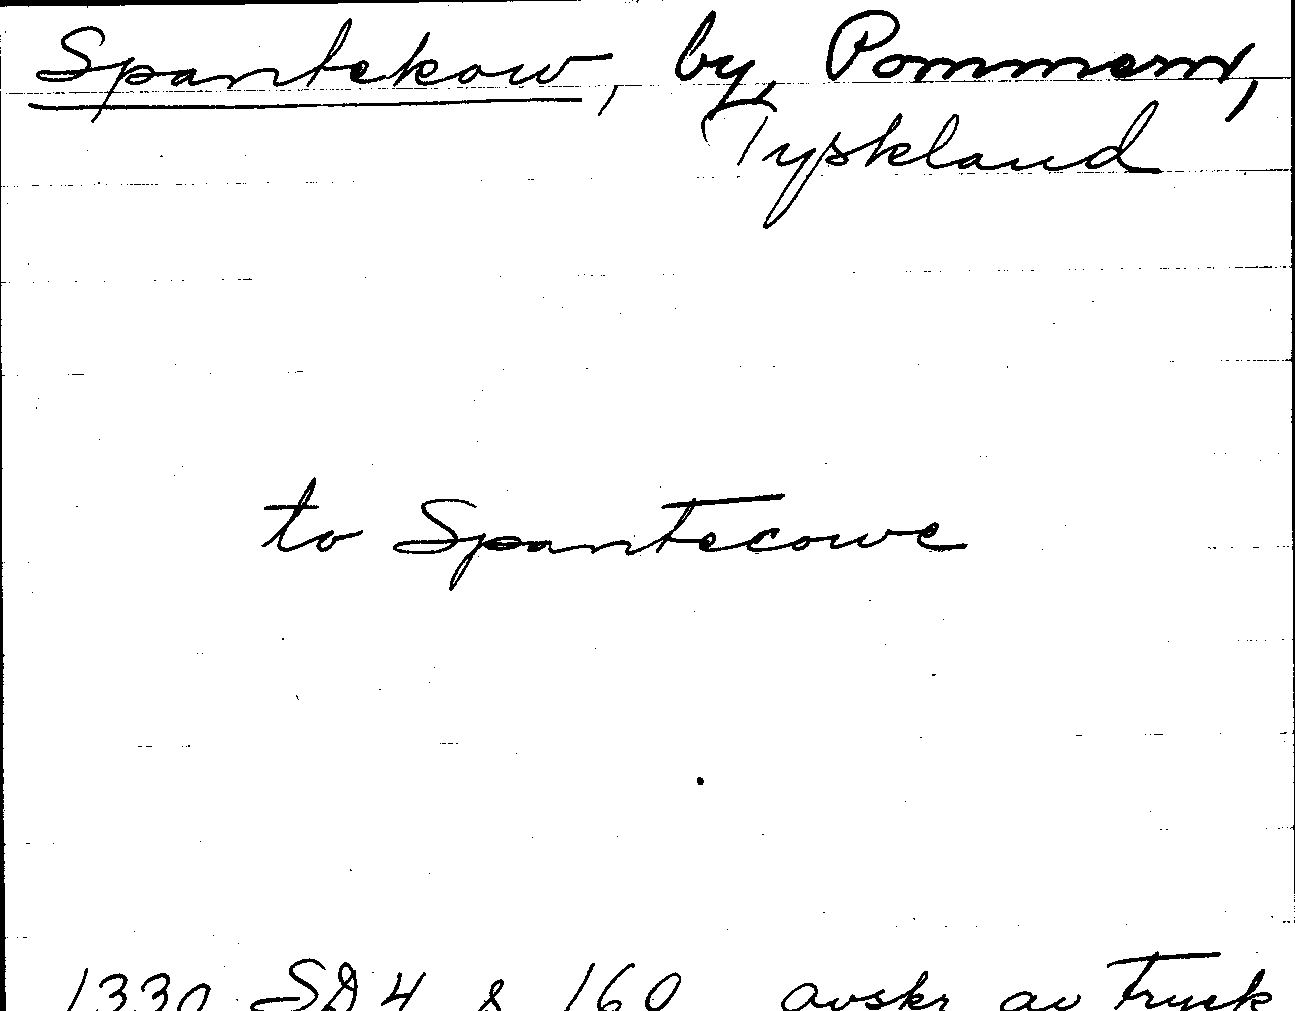 Spantekow, by, Pommern,
Tyskland
to Spantecowe
1330 SD 4 s 160 avskr av tryck